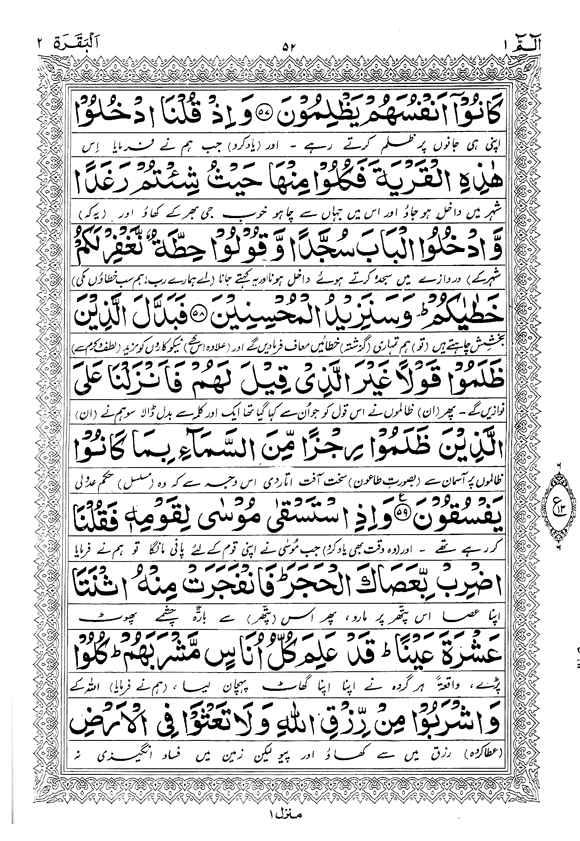 الٓمّٓ ١
٥٢
اَلْبَقَرَة ٢
كَانُوْۤا اَنْفُسَهُمْ يَظْلِمُوْنَ ﴿٥٧﴾ وَ اِذْ قُلْنَا ادْخُلُوْا
اپنی ہی جانوں پر ظلم کرتے رہے ۔ اور (یاد کرو) جب ہم نے فرمایا اس
هٰذِهِ الْقَرْيَةَ فَكُلُوْا مِنْهَا حَيْثُ شِئْتُمْ رَغَدًا
شہر میں داخل ہو جاؤ اور اس میں جہاں سے چاہو خوب جی بھر کے کھاؤ اور (یہ کہ)
وَّ ادْخُلُوا الْبَابَ سُجَّدًا وَّ قُوْلُوْا حِطَّةٌ نَّغْفِرْ لَكُمْ
شہر کے) دروازے میں سجدہ کرتے ہوئے داخل ہونا اور یہ کہتے جانا (اے ہمارے رب: ہم سب خطاؤں کی)
خَطٰيٰكُمْ ؕ وَ سَنَزِيْدُ الْمُحْسِنِيْنَ ﴿٥٨﴾ فَبَدَّلَ الَّذِيْنَ
بخشش چاہتے ہیں (تو) ہم تمہاری (گزشتہ) خطائیں معاف فرما دیں گے اور (علاوہ اس کے) نیکو کاروں کو مزید (لطف و کرم سے)
ظَلَمُوْا قَوْلًا غَيْرَ الَّذِيْ قِيْلَ لَهُمْ فَاَنْزَلْنَا عَلَى
نوازیں گے ۔ پھر (ان) ظالموں نے اس قول کو جو ان سے کہا گیا تھا ایک اور کلمہ سے بدل ڈالا سو ہم نے (ان)
الَّذِيْنَ ظَلَمُوْا رِجْزًا مِّنَ السَّمَآءِ بِمَا كَانُوْا
ظالموں پر آسمان سے (بصورتِ طاعون) سخت آفت اتار دی اس وجہ سے کہ وہ (مسلسل) حکم عدولی
يَفْسُقُوْنَ ﴿٥٩﴾ وَ اِذِ اسْتَسْقٰى مُوْسٰى لِقَوْمِهٖ فَقُلْنَا
کر رہے تھے ۔ اور (وہ وقت بھی یاد کرو) جب موسٰی نے اپنی قوم کے لئے پانی مانگا تو ہم نے فرمایا
اضْرِبْ بِّعَصَاكَ الْحَجَرَ ؕ فَانْفَجَرَتْ مِنْهُ اثْنَتَا
اپنا عصا اس پتھر پر مارو، پھر اس (پتھر) سے بارہ چشمے پھوٹ
عَشْرَةَ عَيْنًا ؕ قَدْ عَلِمَ كُلُّ اُنَاسٍ مَّشْرَبَهُمْ ؕ كُلُوْا
پڑے، واقعۃً ہر گروہ نے اپنا اپنا گھاٹ پہچان لیا، (ہم نے فرمایا) اللہ کے
وَ اشْرَبُوْا مِنْ رِّزْقِ اللّٰهِ وَ لَا تَعْثَوْا فِي الْاَرْضِ
(عطا کردہ) رزق میں سے کھاؤ اور پیو لیکن زمین میں فساد انگیزی نہ
منزل ١